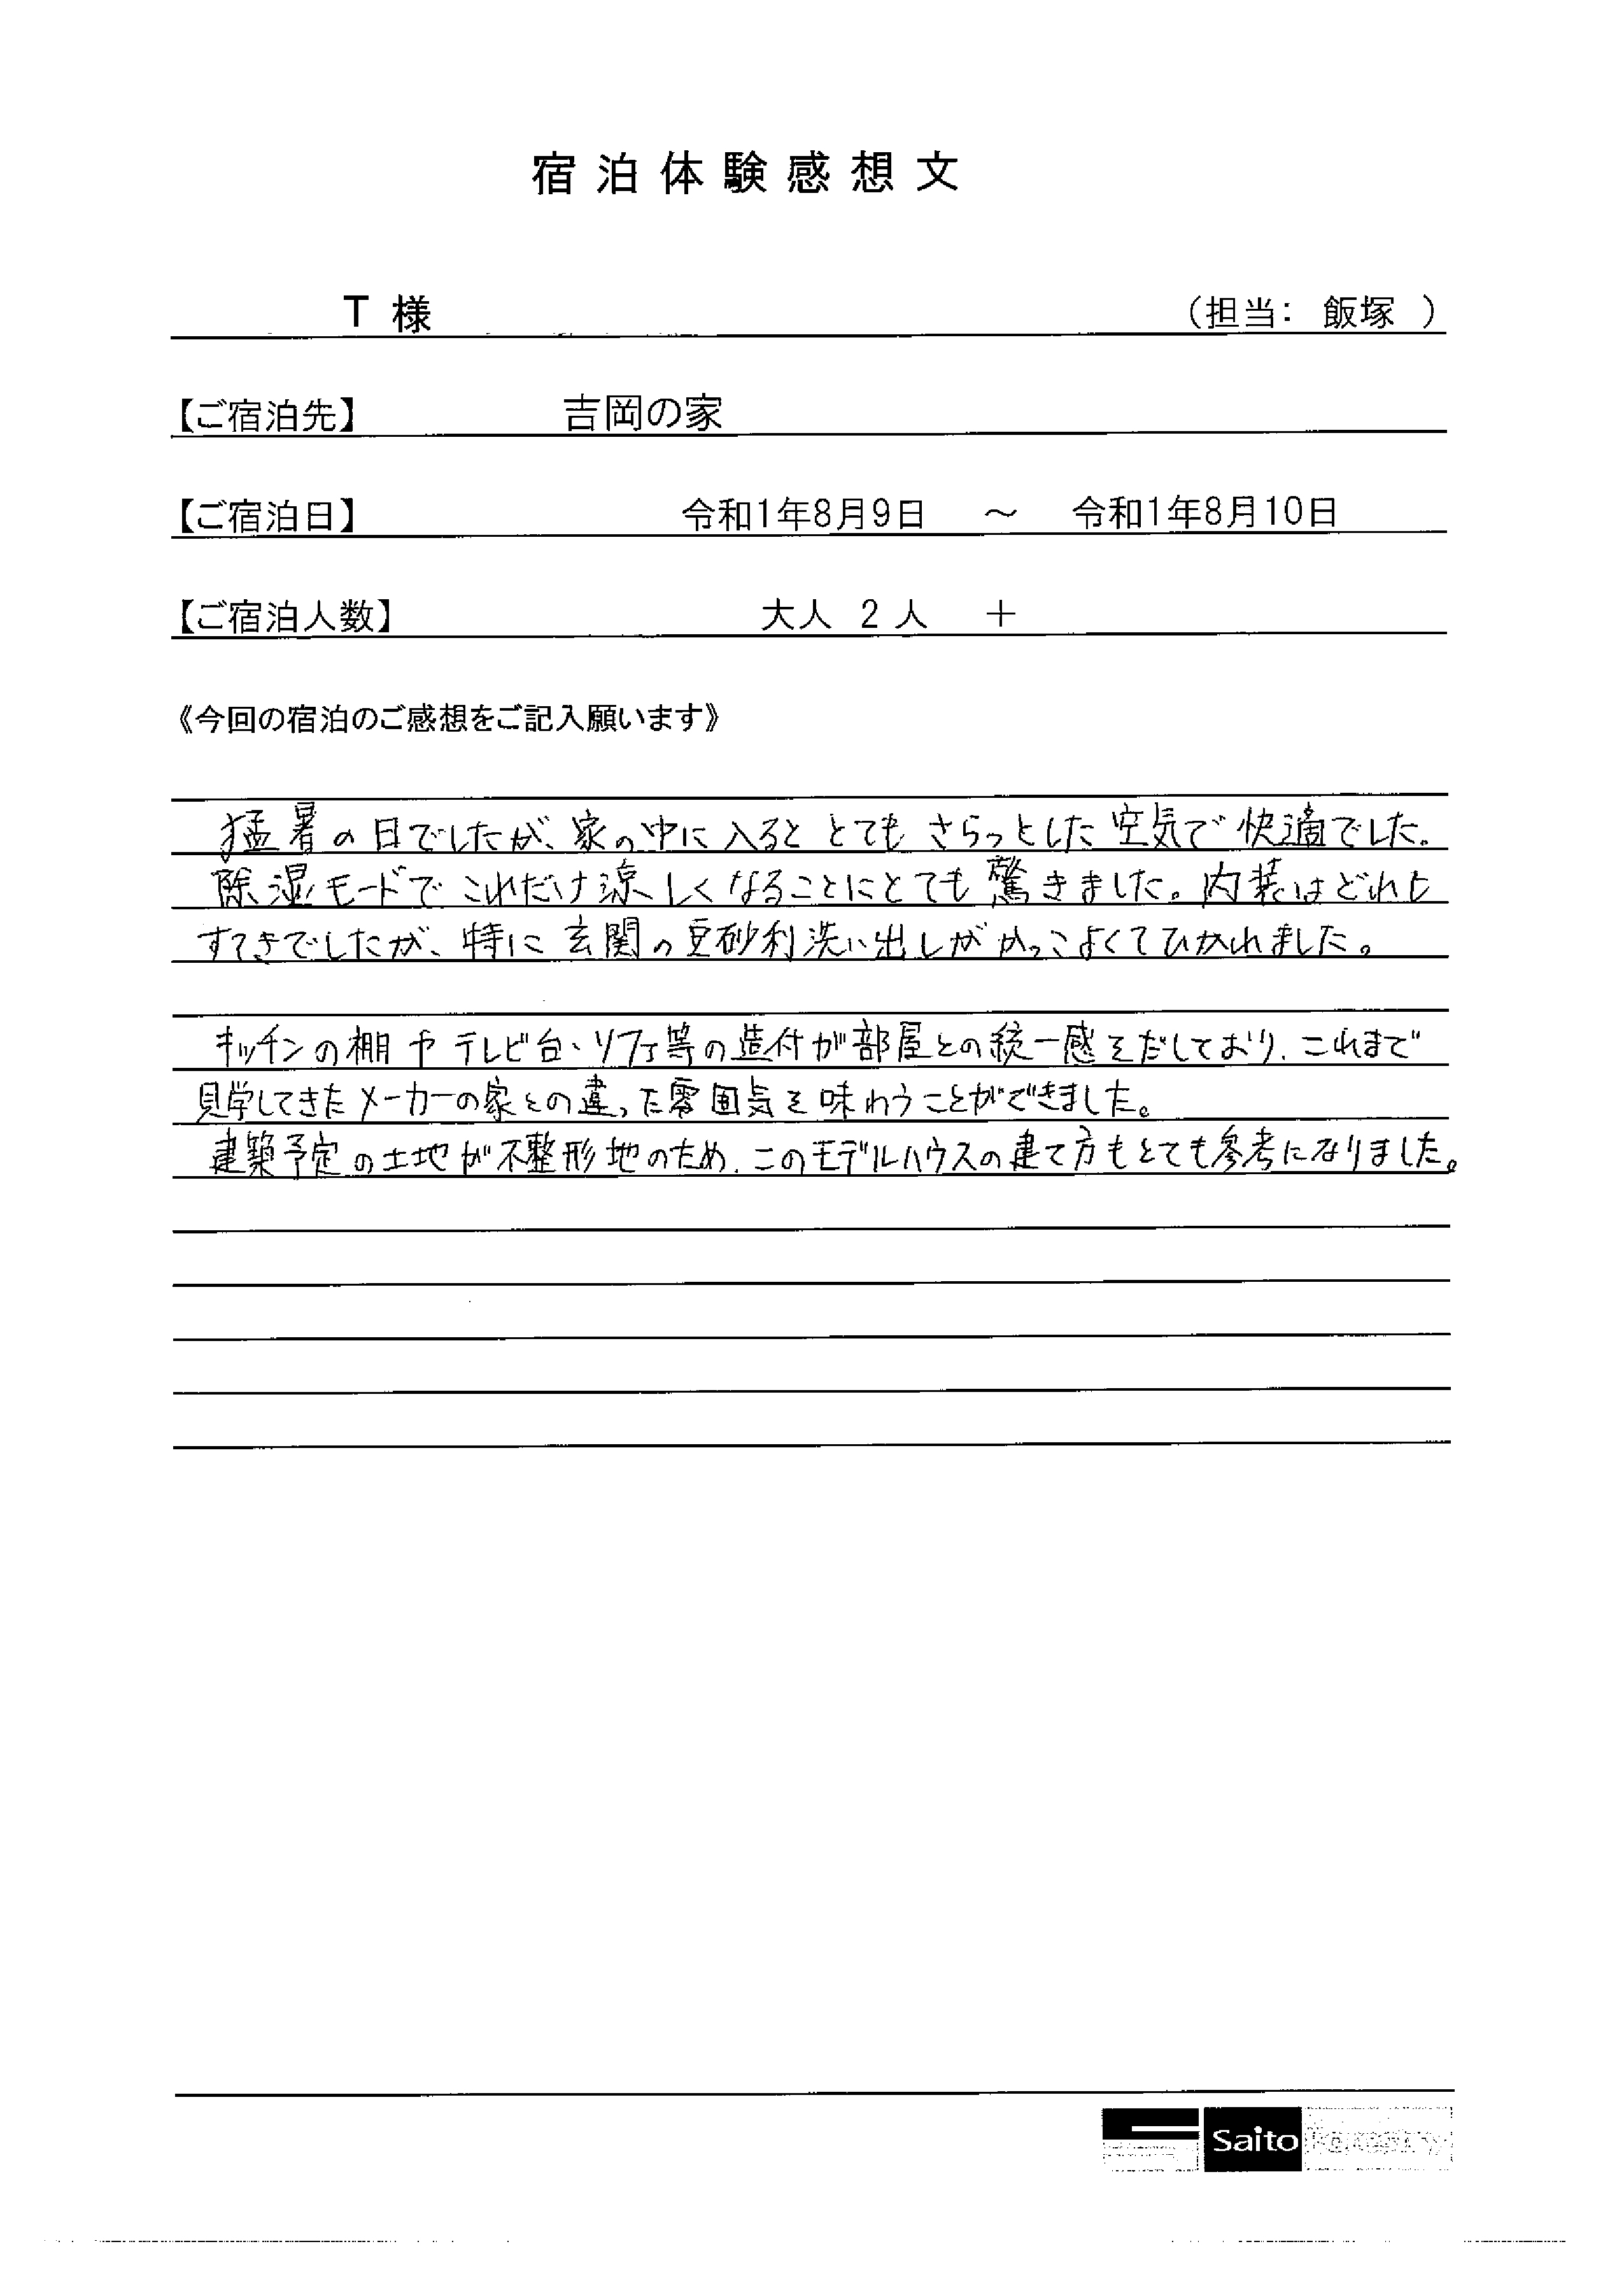 宿泊体験感想文
T 様 （担当： 飯塚 ）
【ご宿泊先】 吉岡の家
【ご宿泊日】 令和1年8月9日 ～ 令和1年8月10日
【ご宿泊人数】 大人 2 人 ＋
《今回の宿泊のご感想をご記入願います》
猛暑の日でしたが、家の中に入ると とても さらっとした 空気で 快適でした。
除湿モードで これだけ涼しくなることにとても 驚きました。内装はどれも
すてきでしたが、特に 玄関の豆砂利洗い出しが かっこよくてひかれました。
キッチンの棚や テレビ台、ソファ等の造付が部屋との統一感をだしており、これまで
見学してきたメーカーの家との違った雰囲気を味わうことができました。
建築予定の土地が不整形地のため、このモデルハウスの建て方もとても参考になりました。
Saito Forestry